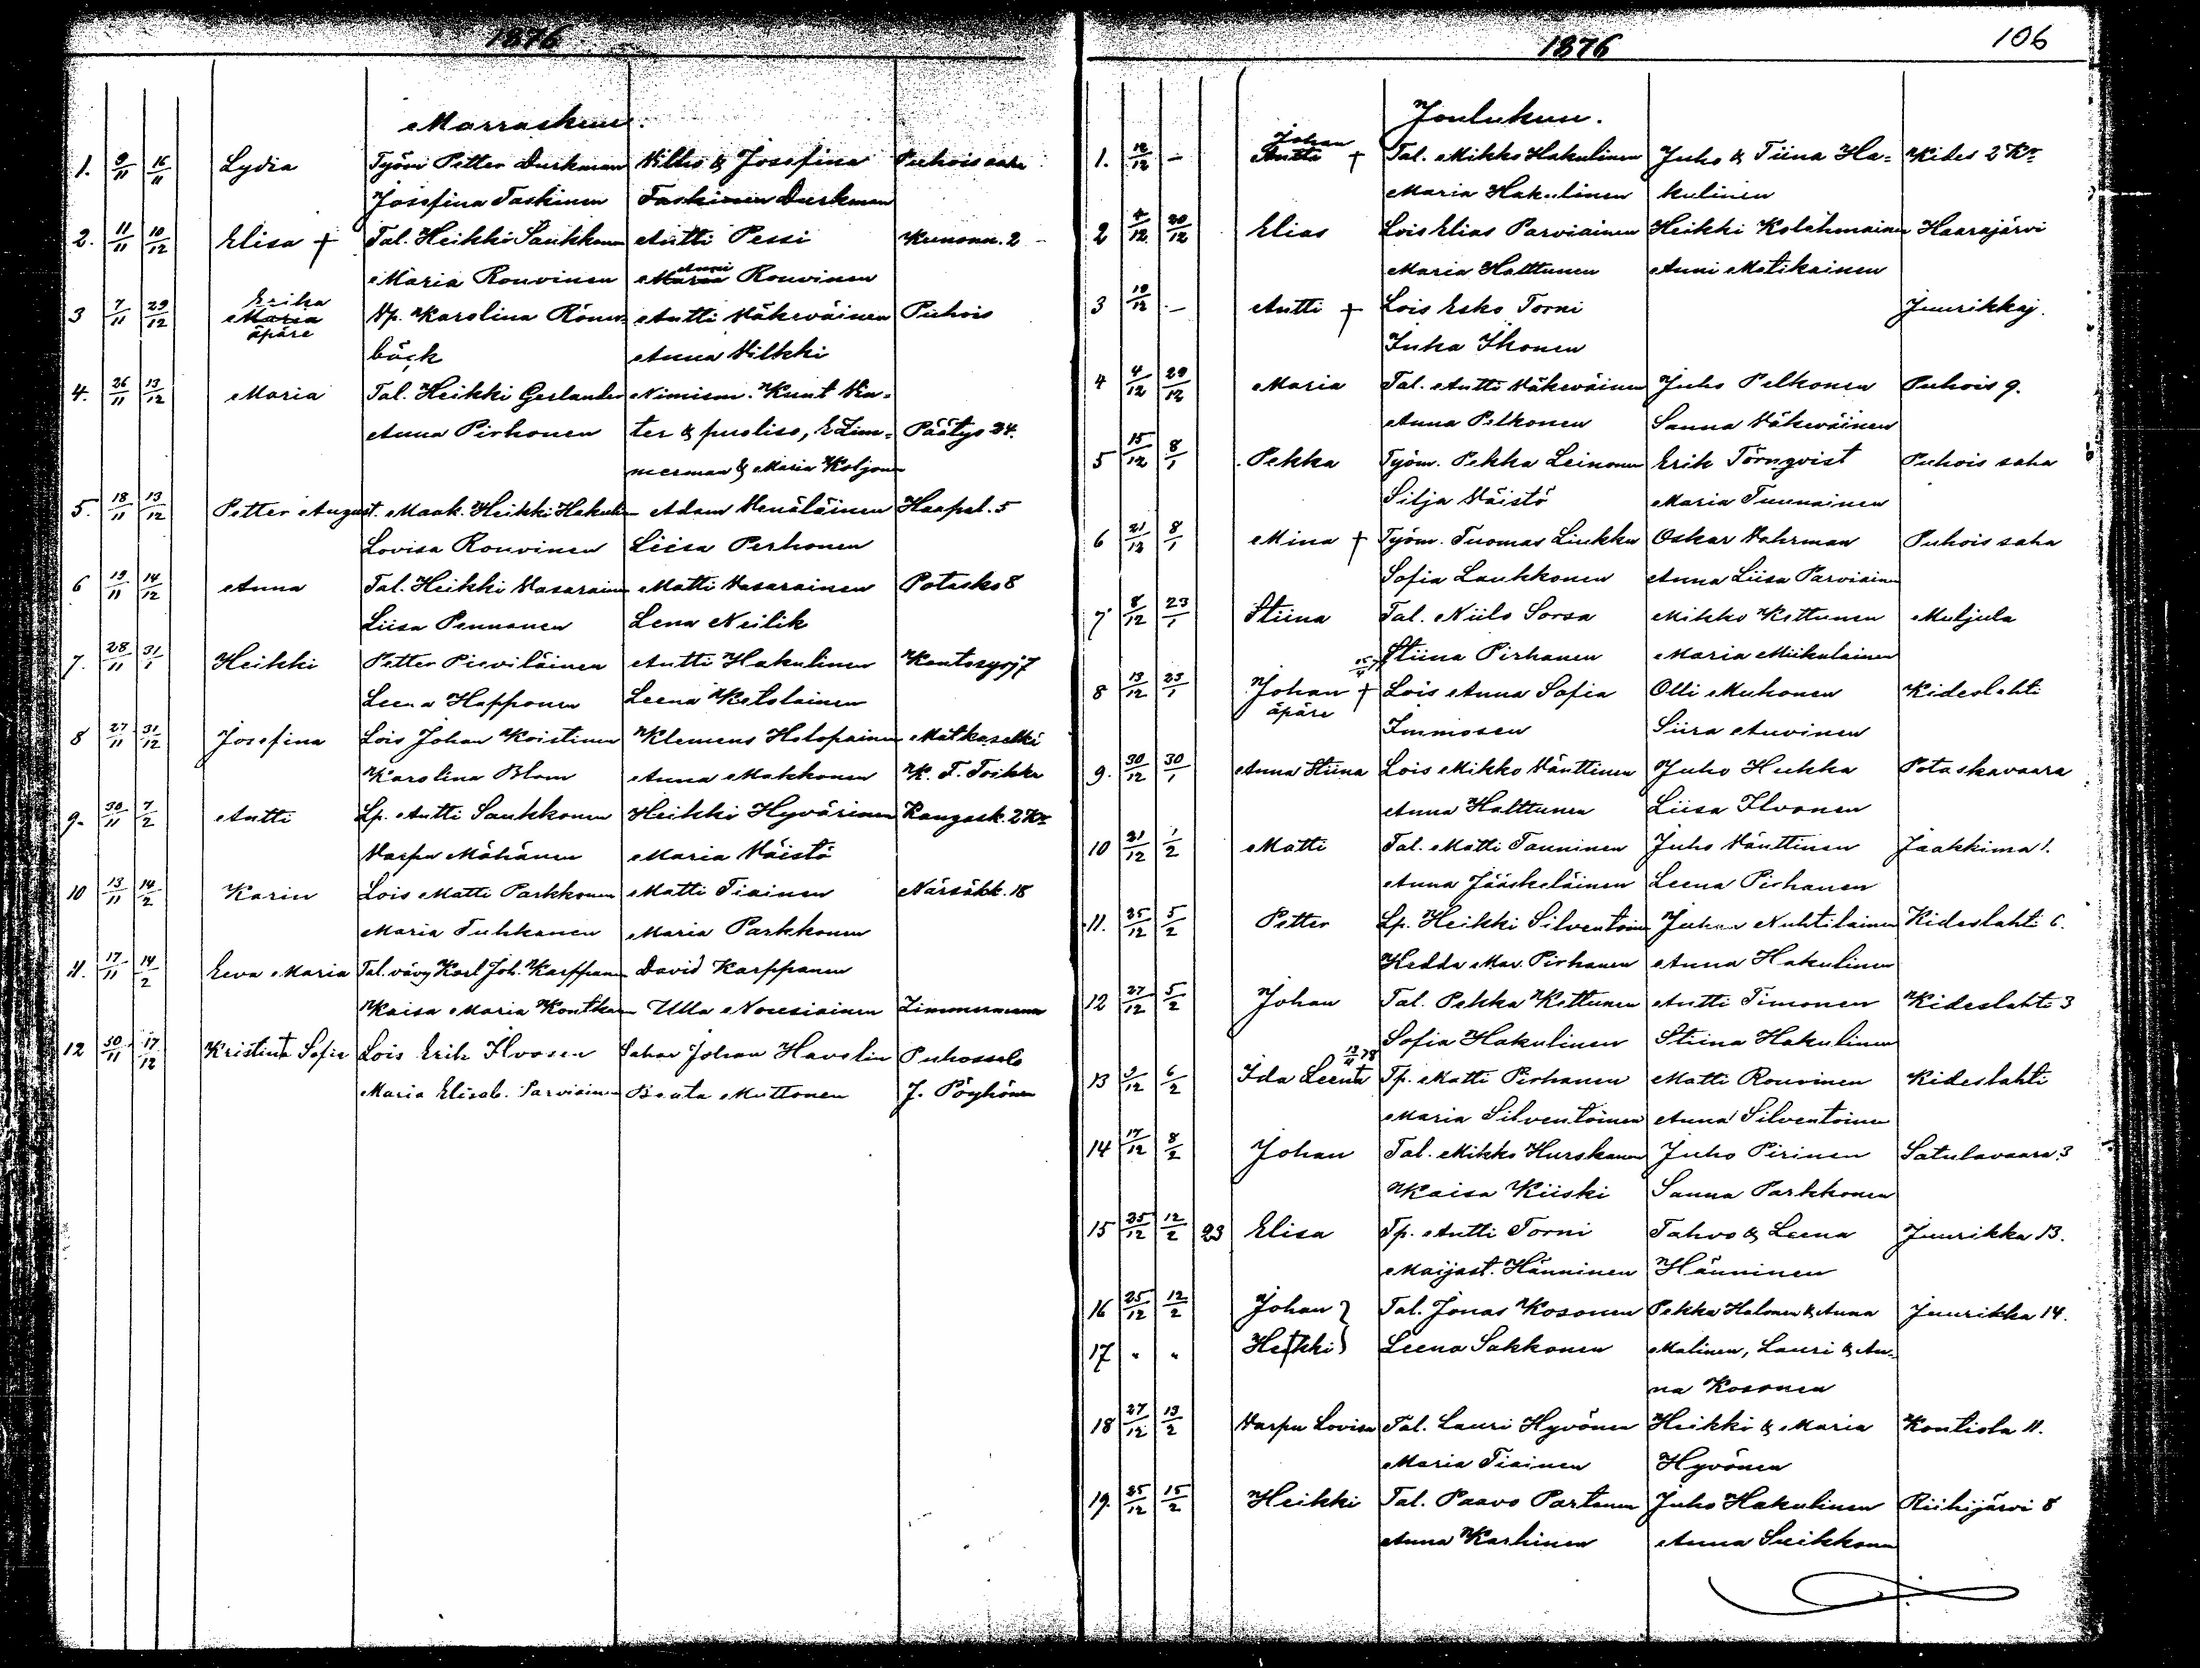 1876
Marraskuu.
1. 9/11 16/11 Lydia Työm Petter Durkman Vilho & Josefina Puhois saha
Josefina Taskinen Taskinen Durkman
2. 11/11 10/12 Elisa + Tal. Heikki Saukkonen Antti Pessi Kunonn. 2
Maria Rouvinen Maria Anni Rouvinen
3 7/11 29/12 Maria Erika äpäre Np. Karolina Rönn- Antti Väkeväinen Puhois
bäck Anna Vilkki
4. 26/11 13/12 Maria Tal. Heikki Gerlander Nimism. Knut
Anna Pirhonen ter & puoliso, E Zim- Päätys 24.
merman & Maria Koljonen
5. 18/11 13/12 Petter August. Maak. Heikki Hakulin Adam Venäläinen Haapsl. 5
Lovisa Rouvinen Liisa Perhonen
6 19/11 14/12 Anna Tal. Heikki Vasarainen Matti Vasarainen Potasko 8
Liisa Pennanen Lena Neilik
7. 28/11 31/1 Heikki Petter Pieviläinen Antti Hakulinen Kontosyrj 7
Leena Happonen Leena Ketolainen
8 27/11 31/12 Josefina Lois Johan Koistinen Klemens Holopainen Matkaselkä
Karolina Blom Anna Makkonen K. T. Toikka
9. 30/11 7/2 Antti Lp. Antti Saukkonen Heikki Hyvärinen Kangask. 2 Kr
Varpu Mähönen Maria Väistö
10 13/11 14/2 Karin Lois Matti Parkkonen Matti Tiainen Närsäkk. 18
Maria Tuhkanen Maria Parkkonen
11. 17/11 14/2 Eeva Maria Tal. vävy Karl Joh. Karppanen David Karppanen
Kaisa Maria Kontkanen Ulla Nousiainen Zimmermann
12 30/11 17/12 Kristina + Sofia Lois Erik Ilvonen Sahar Johan Havelin Puhossalo
Maria Elisab. Parviainen Beata Muttonen J. Pöyhönen
1876
106
Joulukuu.
1. 12/12 — Antti Johan + Tal. Mikko Hakulinen Juho & Tiina Ha- Kides 2 Kr
Maria Hakulinen kulinen
2 4/12 20/12 Elias Lois Elias Parviainen Heikki Kolehmainen Haarajärvi
Maria Halttunen Anni Matikainen
3 19/12 — Antti + Lois Esko Torni Juurikkaj.
Inka Ikonen
4 4/12 29/12 Maria Tal. Antti Väkeväinen Juho Pelkonen Puhois 9.
Anna Pelkonen Sanna Väkeväinen
5 15/12 8/1 Pekka Työm. Pekka Leinonen Erik Törnqvist Puhois saha
Silja Väistö Maria Tuunainen
6 21/12 8/1 Mina + Työm. Tuomas Liukku Oskar Vahrman Puhois saha
Sofia Laukkonen Anna Liisa Parviainen
7 8/12 23/1 Stiina Tal. Niilo Sorsa Mikko Kettunen Muljula
Stiina Pirhonen Maria Miikulainen
8 13/12 23/1 Johan äpäre + Lois Anna Sofia Olli Muhonen Kideslahti
Immosen Siira Auvinen
9. 30/12 30/1 Anna Stiina Lois Mikko Vänttinen Juho Hukka Potaskavaara
Anna Halttunen Liisa Ilvonen
10 21/12 1/2 Matti Tal. Matti Tanninen Juho Vänttinen Jaakkima 1.
Anna Jääskeläinen Leena Pirhonen
11. 25/12 5/2 Petter Lp. Heikki Silventoinen Juhana Nuhtilainen Kideslahti 6.
Hedda Mar. Pirhonen Anna Hakulinen
12 27/12 5/2 Johan Tal. Pekka Kettunen Antti Timonen Kideslahti 3
Sofia Hakulinen Stiina Hakulinen
13 3/12 6/2 Ida Leena + Tp. Matti Pirhonen Matti Rouvinen Kideslahti
Maria Silventoinen Anna Silventoinen
14 17/12 8/2 Johan Tal. Mikko Hurskanen Juho Pirinen Satulavaara 3
Kaisa Kiiski Sanna Parkkonen
15 25/12 12/2 23 Elisa Tp. Antti Torni Tahvo & Leena Juurikka 13.
Maijast. Hänninen Hänninen
16 25/12 12/2 Johan } Tal. Jonas Kosonen Pekka Halonen & Anna Juurikka 14.
17 " " Heikki } Leena Sakkonen Malinen, Lauri & An-
na Kosonen
18 27/12 13/2 Varpu Lovisa Tal. Lauri Hyvönen Heikki & Maria Kontiola 11.
Maria Tiainen Hyvönen
19. 25/12 15/2 Heikki Tal. Paavo Partanen Juho Hakulinen Riihijärvi 8
Anna Karhinen Anna Suikkonen